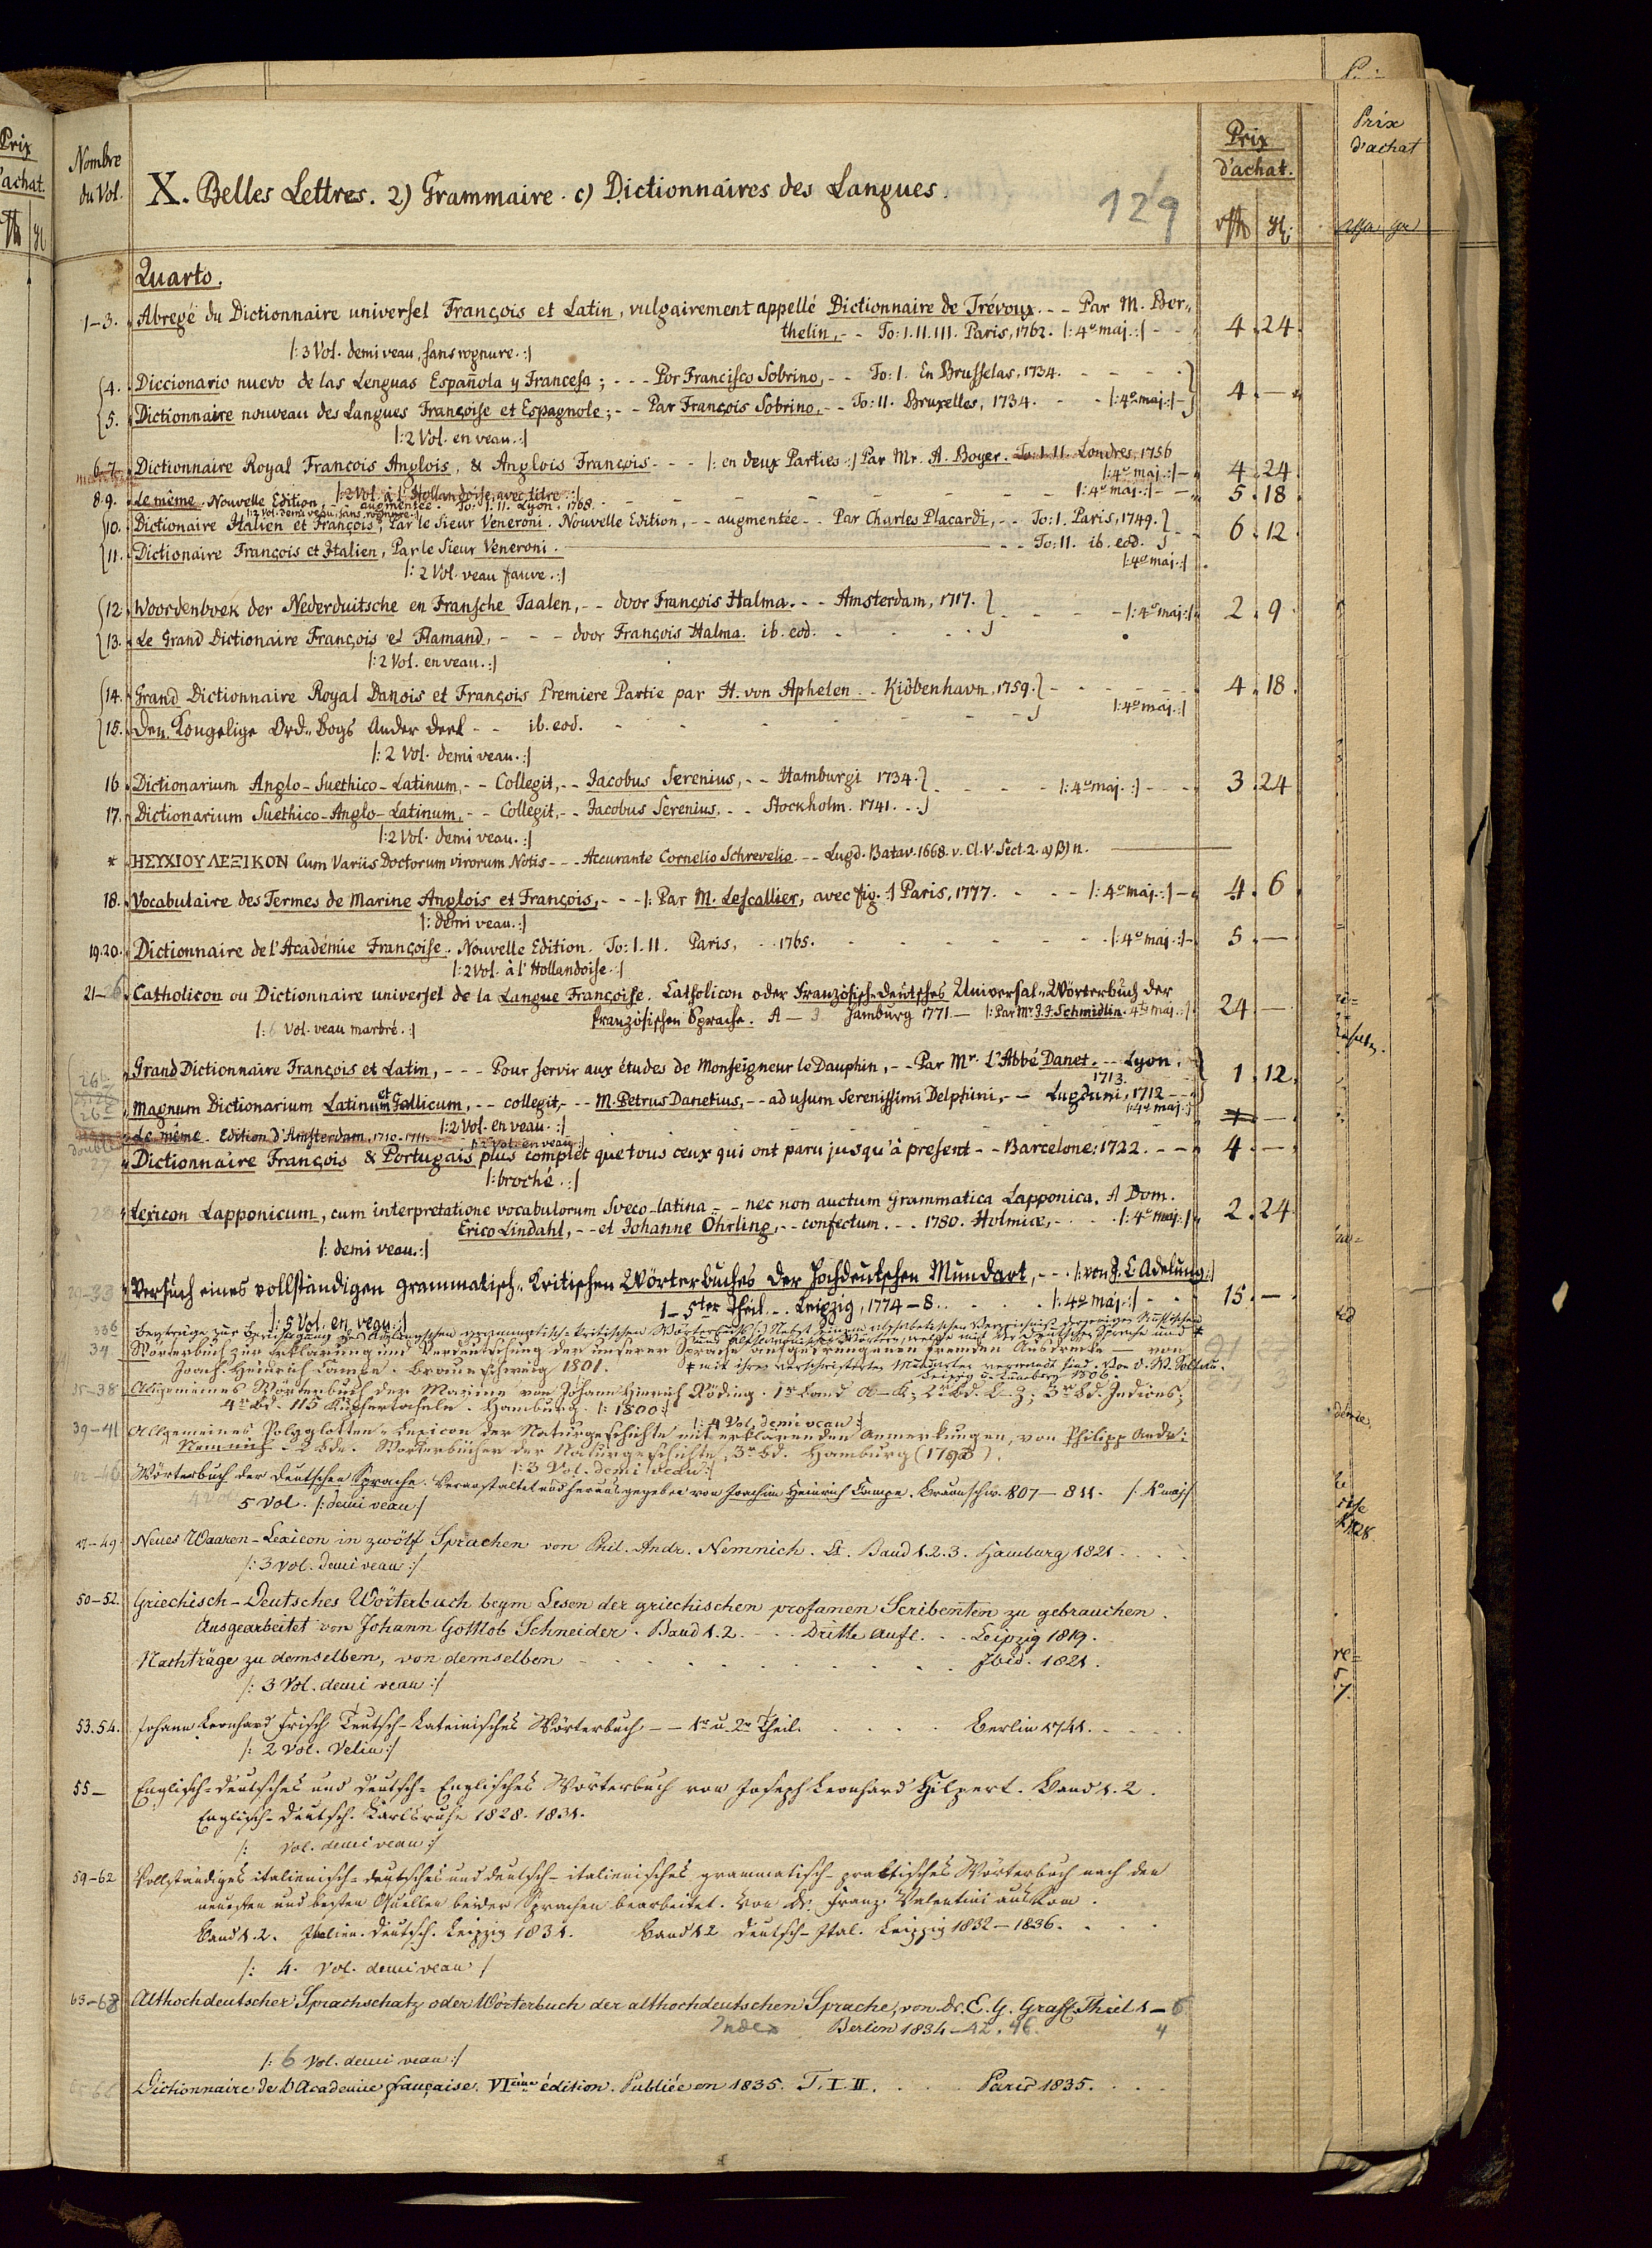 Prix
d'achat.
Nombre
du Vol.
X. Belles Lettres. 2) Grammaire. c) Dictionnaires des Langues.
129
Prix
d'achat.
Prix
d'achat
Quarto.
1-3. Abregé du Dictionnaire universel François et Latin, vulgairement appellé Dictionnaire de Trévoux. - - Par M. Ber-
thelin, - - To: I. II. III. Paris, 1762. |: 4º maj. :| - - 4. 24.
|: 3 Vol. demi veau, sans rognure. :|
4. Diccionario nuevo de las Lenguas Española y Francesa; - - - Por Francisco Sobrino, - - To: I. En Brusselas, 1734.
5. Dictionnaire nouveau des Langues Françoise et Espagnole; - - Par François Sobrino, - - To: II. Bruxelles, 1734. - - |: 4º maj. :| - 4. —
|: 2 Vol. en veau. :|
6-7. Dictionnaire Royal François Anglois, & Anglois François. - - - |: en deux Parties :| Par Mr. A. Boyer. To: I. II. Londres, 1756
|: 4º maj. :| - 4. 24.
|: 2 Vol. à l'Hollandoise, avec titre. :|
8-9. Le même. Nouvelle Edition, - - augmentée. To: I. II. Lyon. 1768. |: 4º maj. :| - - 5. 18.
|: 2 Vol. demi veau, sans rognure. :|
10. Dictionaire Italien et François, Par le Sieur Veneroni. Nouvelle Edition, - - augmentée - - Par Charles Placardi, - - To: I. Paris, 1749. 6. 12.
11. Dictionaire François et Italien, Par le Sieur Veneroni. - - To: II. ib. eod.
|: 4º maj. :|
|: 2 Vol. veau fauve. :|
12. Woordenboek der Nederduitsche en Fransche Taalen, - - door François Halma. - - Amsterdam, 1717. - |: 4º maj. :| 2. 9.
13. Le Grand Dictionaire François et Flamand, - - - door François Halma. ib. eod.
|: 2 Vol. en veau. :|
14. Grand Dictionnaire Royal Danois et François Premiere Partie par H. von Aphelen. - Kiöbenhavn. 1759. 4. 18.
|: 4º maj. :|
15. Den Kongelige Ord-Bogs Anden Deel - - ib. eod.
|: 2 Vol. demi veau. :|
16. Dictionarium Anglo-Suethico-Latinum, - - Collegit, - - Jacobus Serenius, - - Hamburgi 1734. |: 4º maj. :| - - - 3. 24
17. Dictionarium Suethico-Anglo-Latinum, - - Collegit, - - Jacobus Serenius, - - Stockholm. 1741.
|: 2 Vol. demi veau. :|
* ΗΣΥΧΙΟΥ ΛΕΞΙΚΟΝ Cum Variis Doctorum virorum Notis - - - Accurante Cornelio Schrevelio. - - Lugd. Batav. 1668. v. Cl. V. Sect. 2. a) β) n.
18. Vocabulaire des Termes de Marine Anglois et François, - - - |: Par M. Lescallier, avec fig. :| Paris, 1777. - - - |: 4º maj. :| - 4. 6
|: demi veau. :|
19.20. Dictionnaire de l'Académie Françoise. Nouvelle Edition. To: I. II. Paris, - - 1765. |: 4º maj. :| - 5. —
|: 2 Vol. à l'Hollandoise. :|
21-26 Catholicon ou Dictionnaire universel de la Langue Françoise. Catholicon oder Französisch-deutsches Universal-Wörterbuch der
französischen Sprache. A — Hamburg 1771 — |: Par Mr. J. J. Schmidlin. 4to maj. :| 24. —
|: 6 Vol. veau marbré. :|
26b Grand Dictionnaire François et Latin, - - - Pour servir aux études de Monseigneur le Dauphin, - - Par Mr. L'Abbé Danet. - - Lyon.
1713. 1. 12.
26c Magnum Dictionarium Latinum et Gallicum, - - collegit, - - M. Petrus Danetius, - - ad usum Serenissimi Delphini, - - Lugduni, 1712 - -
|: 4º maj. :|
|: 2 Vol. en veau. :|
double Le même. Edition d'Amsterdam. 1710-1711.
|: 2 Vol. en veau :|
27 Dictionnaire François & Portugais plus complet que tous ceux qui ont paru jusqu'à present - - Barcelone: 1722. - - 4. —
|: broché. :|
28 Lexicon Lapponicum, cum interpretatione vocabulorum Sveco-latina - - nec non auctum Grammatica Lapponica. A Dom.
Erico Lindahl, - - et Johanne Öhrling, - - confectum. - - 1780. Holmiæ, - - |: 4º maj. :| 2. 24.
|: demi veau. :|
29-33 Versuch eines vollständigen grammatisch-kritischen Wörterbuches der Hochdeutschen Mundart, - - - |: von J. C. Adelung :|
1-5ter Theil. - - Leipzig, 1774-8. |: 4º maj. :| 15. —
|: 5 Vol. en veau :|
33b Beyträge zur Berichtigung des Adelungschen grammatisch-kritischen Wörterbuchs Nebst einem alphabetischen Verzeichniß derjenigen Russischen
und Altslawonischen Wörter, welche mit der deutschen Sprache und *
34 Wörterbuch zur Erklärung und Verdeutschung der unserer Sprache aufgedrungenen fremden Ausdrücke — von
Joach. Heinrich Campe. Braunschweig 1801. * mit ihren verschwisterten Mundarten verwandt sind. Von D. W. Soltau.
Leipzig u. Lüneburg 1806.
35-38 Allgemeines Wörterbuch der Marine von Johann Hinrich Röding. 1r Band A-K; 2r Bd. L-Z; 3r Bd. Indices;
4r Bd. 115 Kupfertafeln. Hamburg. |: 1800 :|
|: 4 Vol. demi veau :|
39-41 Allgemeines Polyglotten-Lexicon der Naturgeschichte mit erklärenden Anmerkungen, von Philipp Andr:
Nemnich Wörterbücher der Naturgeschichte, 3r Bd. Hamburg (1798).
|: 3 Vol. demi veau :|
42-46 Wörterbuch der deutschen Sprache. Veranstaltet und herausgegeben von Joachim Heinrich Campe. Braunschw. 807-811. |: 4º maj :|
5 Vol. |: demi veau :|
47-49 Neues Waaren-Lexicon in zwölf Sprachen von Phil. Andr. Nemnich. Band 1. 2. 3. Hamburg 1821.
|: 3 Vol. demi veau :|
50-52. Griechisch-Deutsches Wörterbuch beym Lesen der griechischen profanen Scribenten zu gebrauchen.
Ausgearbeitet von Johann Gottlob Schneider. Band 1. 2. Dritte Aufl. Leipzig 1819.
Nachträge zu demselben, von demselben Ibid. 1821.
|: 3 Vol. demi veau :|
53.54. Johann Leonhard Frisch Teutsch-Lateinisches Wörterbuch - - 1r u. 2r Theil. Berlin 1741.
|: 2 Vol. Velin :|
55- Englisch-deutsches und deutsch-Englisches Wörterbuch von Joseph Leonhard Hilpert. Band 1. 2.
Englisch-Deutsch. Karlsruhe 1828. 1831.
|: Vol. demi veau :|
59-62 Vollständiges italienisch-deutsches und deutsch-italienisches grammatisch-praktisches Wörterbuch nach den
neuesten und besten Quellen beider Sprachen bearbeitet. Von Dr. Franz. Valentini aus Rom.
Band 1. 2. Italien. Deutsch. Leipzig 1831. Band 1. 2 Deutsch-Ital. Leipzig 1832-1836.
|: 4. Vol. demi veau :|
63-68 Althochdeutscher Sprachschatz oder Wörterbuch der althochdeutschen Sprache, von Dr. E. G. Graff. Theil 1-6
Index Berlin 1834-42. 46. 4
|: 6 Vol. demi veau :|
Dictionnaire de l'Academie française. VIème édition. Publiée en 1835. T. I. II. Paris 1835.